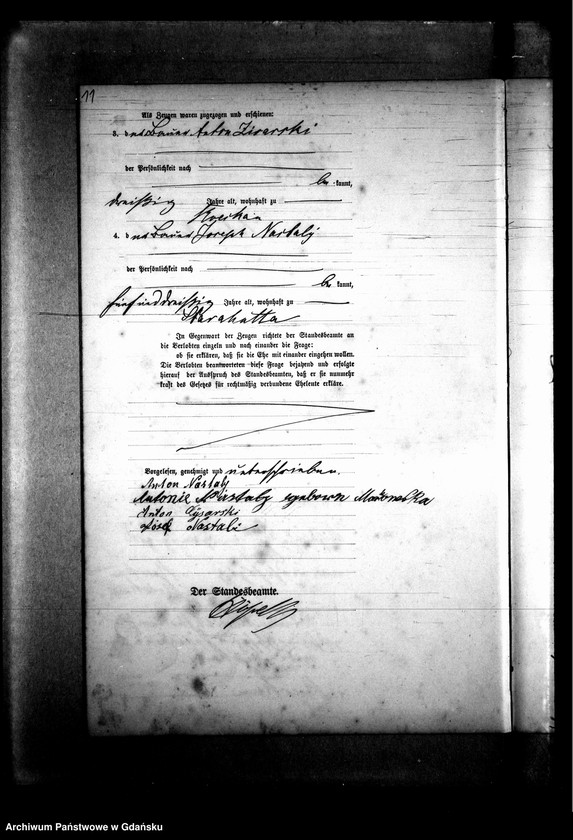 11
Als Zeugen waren zugezogen und erschienen:
3. der Bauer Anton
der Persönlichkeit nach
be kannt,
dreißig Jahre alt, wohnhaft zu
4. der Bauer Joseph Nastaly
der Persönlichkeit nach
be kannt,
fünfunddreißig Jahre alt, wohnhaft zu
Starahutta
In Gegenwart der Zeugen richtete der Standesbeamte an
die Verlobten einzeln und nach einander die Frage:
ob sie erklären, daß sie die Ehe mit einander eingehen wollen.
Die Verlobten beantworteten diese Frage bejahend und erfolgte
hierauf der Ausspruch des Standesbeamten, daß er sie nunmehr
kraft des Gesetzes für rechtmäßig verbundene Eheleute erkläre.
Vorgelesen, genehmigt und unterschrieben.
Anton Nastaly
Antonie Nastaly geborn
Anton Cysarski
Josef Nastali
Der Standesbeamte.
Archiwum Państwowe w Gdańsku